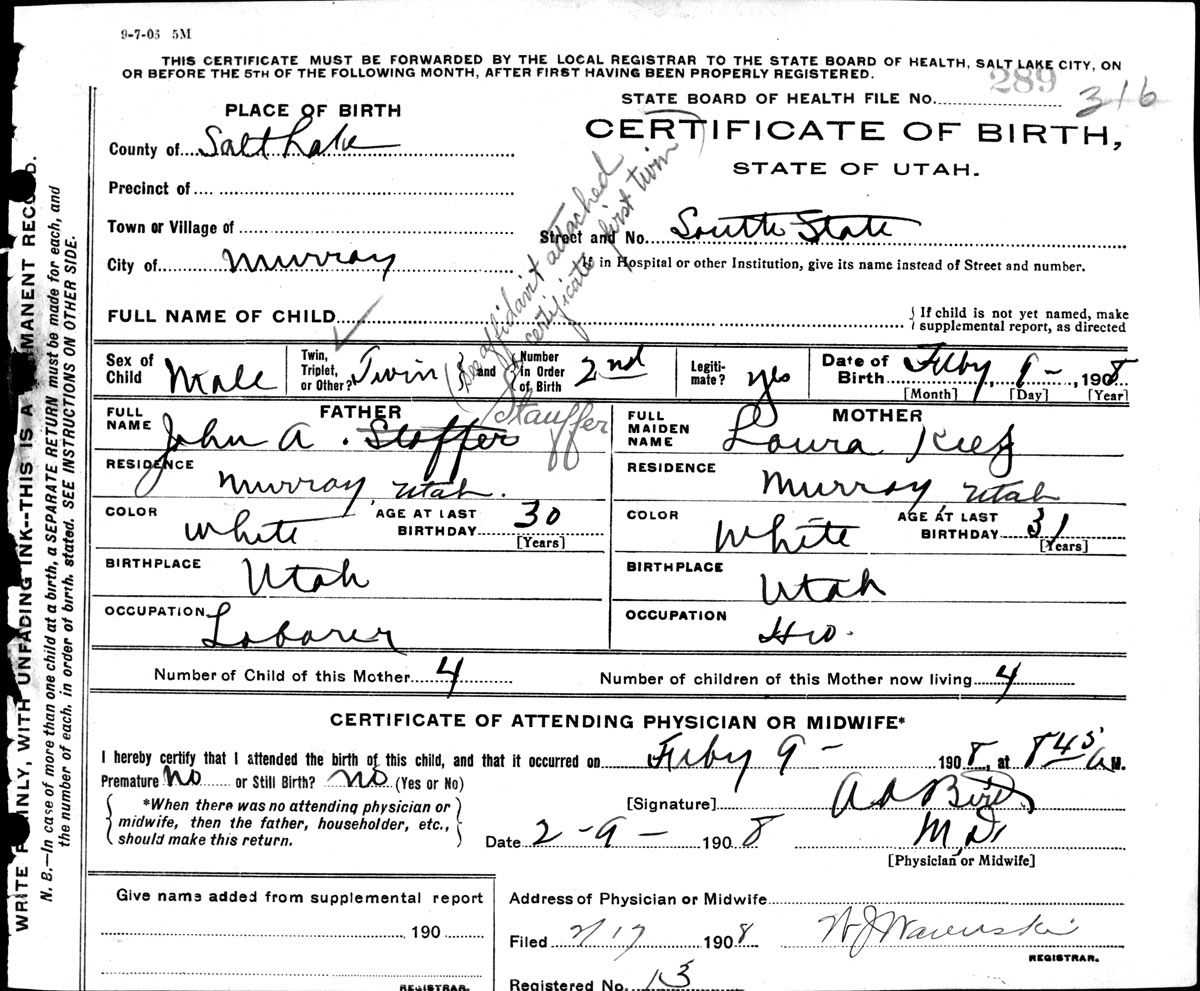 9-7-06 5M
THIS CERTIFICATE MUST BE FORWARDED BY THE LOCAL REGISTRAR TO THE STATE BOARD OF HEALTH, SALT LAKE CITY, ON
OR BEFORE THE 5TH OF THE FOLLOWING MONTH, AFTER FIRST HAVING BEEN PROPERLY REGISTERED.
289
STATE BOARD OF HEALTH FILE No. 316
PLACE OF BIRTH
CERTIFICATE OF BIRTH,
STATE OF UTAH.
County of Salt Lake
Precinct of
Town or Village of
Street and No. South State
City of Murray
If in Hospital or other Institution, give its name instead of Street and number.
FULL NAME OF CHILD
{ If child is not yet named, make
supplemental report, as directed
(See affidavit attached
to certificate first twin)
Sex of Child Male
Twin, Triplet, or Other? Twin
and Number in Order of Birth 2nd
Legitimate? yes
Date of Birth Feby 9 - , 1908
[Month] [Day] [Year]
FATHER
FULL NAME John A. Stoffer Stauffer
RESIDENCE Murray, Utah.
COLOR White
AGE AT LAST BIRTHDAY 30
[Years]
BIRTHPLACE Utah
OCCUPATION Laborer
MOTHER
FULL MAIDEN NAME Laura
RESIDENCE Murray Utah
COLOR White
AGE AT LAST BIRTHDAY 31
[Years]
BIRTHPLACE Utah
OCCUPATION Hw.
Number of Child of this Mother 4
Number of children of this Mother now living 4
CERTIFICATE OF ATTENDING PHYSICIAN OR MIDWIFE*
I hereby certify that I attended the birth of this child, and that it occurred on Feby 9 - 1908, at 8 45 A M.
Premature No or Still Birth? No (Yes or No)
*When there was no attending physician or
midwife, then the father, householder, etc.,
should make this return.
[Signature]
Date 2-9- 1908
M.D.
[Physician or Midwife]
Give name added from supplemental report
190
REGISTRAR.
Address of Physician or Midwife
Filed 2/17 1908
REGISTRAR.
Registered No. 13
WRITE PLAINLY, WITH UNFADING INK--THIS IS A PERMANENT RECORD.
N. B.—In case of more than one child at a birth, a SEPARATE RETURN must be made for each, and
the number of each, in order of birth, stated. SEE INSTRUCTIONS ON OTHER SIDE.